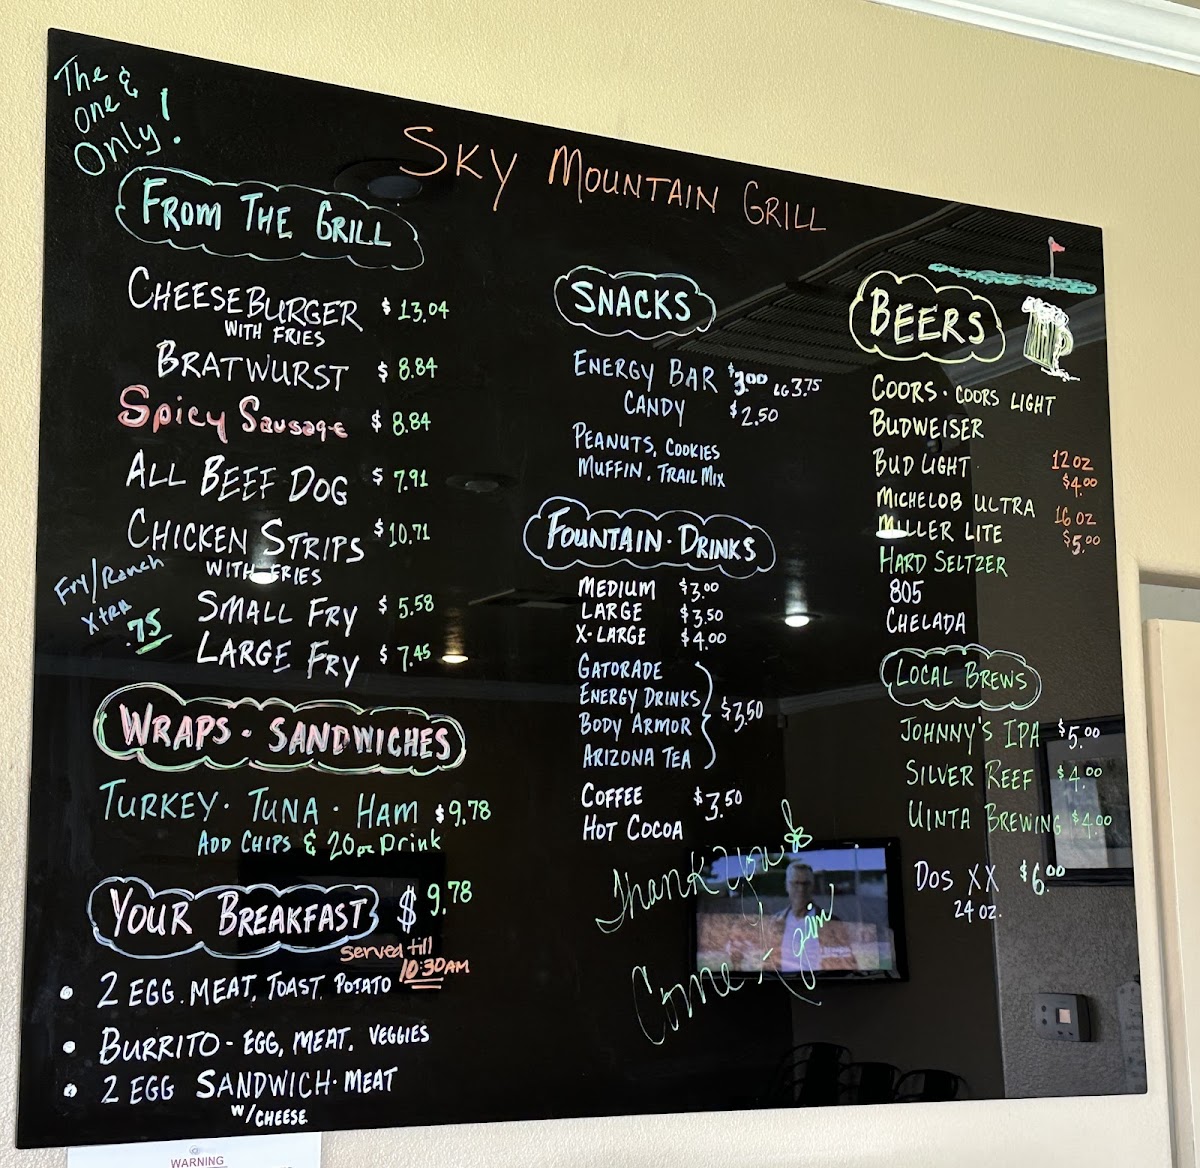 The &
one
Only!
SKY MOUNTAIN GRILL
FROM THE GRILL
CHEESEBURGER $13.04
WITH FRIES
BRATWURST $8.84
Spicy Sausage $8.84
ALL BEEF DOG $7.91
CHICKEN STRIPS $10.71
WITH FRIES
Fry/Ranch
Xtra
.75
SMALL FRY $5.58
LARGE FRY $7.45
WRAPS · SANDWICHES
TURKEY · TUNA · HAM $9.78
ADD CHIPS & 20oz Drink
YOUR BREAKFAST $9.78
Served till
10:30AM
• 2 EGG. MEAT, TOAST. POTATO
• BURRITO - EGG, MEAT. VEGGIES
• 2 EGG SANDWICH · MEAT
W/CHEESE
SNACKS
ENERGY BAR $3.00 LG 3.75
CANDY $2.50
PEANUTS, COOKIES
MUFFIN. TRAIL MIX
FOUNTAIN · DRINKS
MEDIUM $3.00
LARGE $3.50
X-LARGE $4.00
GATORADE
ENERGY DRINKS
BODY ARMOR
ARIZONA TEA
$3.50
COFFEE $3.50
HOT COCOA
Thank You
Come Again
BEERS
COORS · COORS LIGHT
BUDWEISER
BUD LIGHT
MICHELOB ULTRA
MILLER LITE
HARD SELTZER
805
CHELADA
12 OZ
$4.00
16 OZ
$5.00
LOCAL BREWS
JOHNNY'S IPA $5.00
SILVER REEF $4.00
UINTA BREWING $4.00
DOS XX $6.00
24 OZ.
WARNING